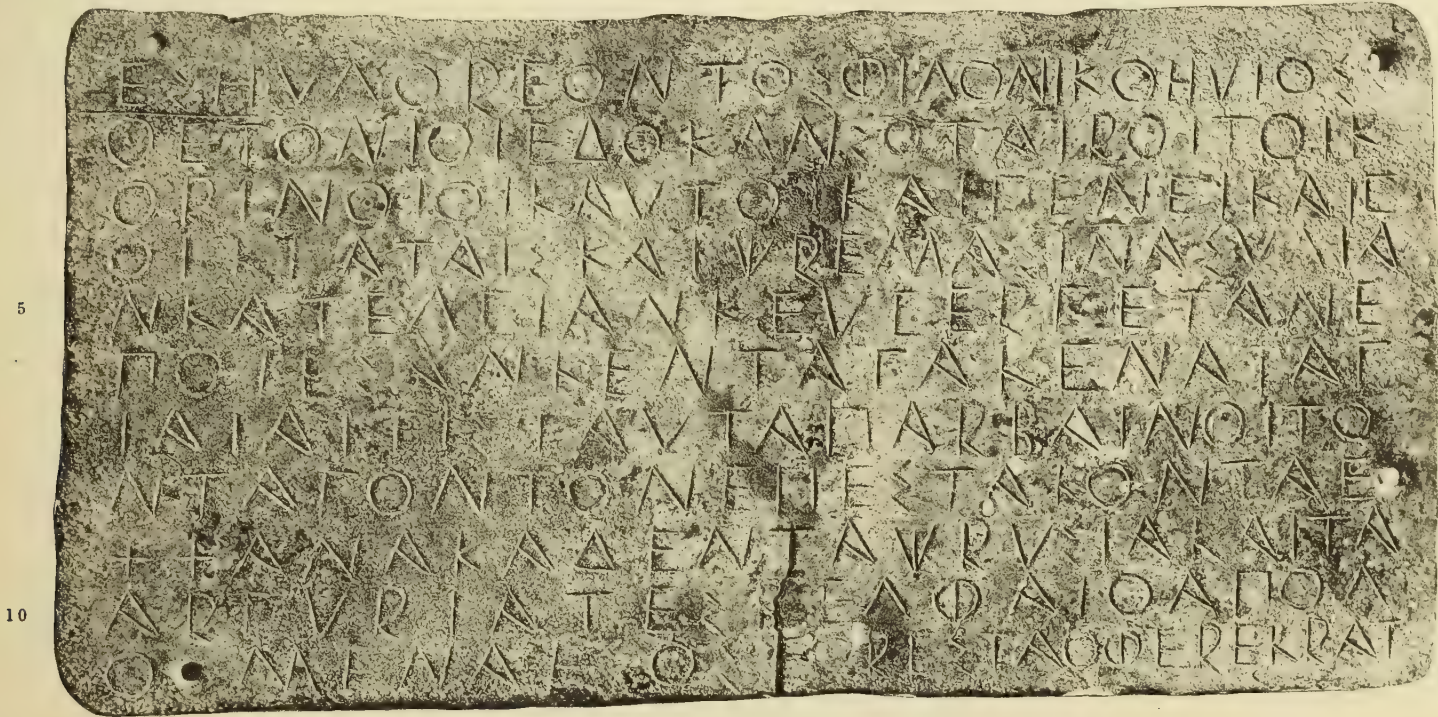 ΕΣΗΥΛΟΡΕΟΝΤΟΣΦΙΛΟΝΙΚΟΗΥΙΟΣ
ΘΕΤΟΝΙΟΙΕΔΟΚΑΝΣΟΤΑΙΡΟΙΤΟΙΚ
ΟΡΙΝΘΙΟΙΚΑΥΤΟΙΚΑΙΓΕΝΕΙΚΑΙϜ
ΟΙΚΙΑΤΑΙΣΚΑΙΨΡΕΜΑΣΙΝΑΣΥΛΙΑ
5 ΝΚΑΤΕΛΕΙΑΝΚΕΥϜΕΡΓΕΤΑΝΕ
ΠΟΙΕΣΑΝΚΕΝΤΑΓΑΚΕΝΑΤΑΓ
ΙΑΙΑΙΤΙΣΤΑΥΤΑΠΑΡΒΑΙΝΟΙΤΟ
ΝΤΑΓΟΝΤΟΝΕΠΕΣΤΑΚΟΝΤΑΕ
++ΑΝΑΚΑΔΕΝΤΑΨΡΥΣΙΑΚΑΙΤΑ
10 ΑΡΓΥΡΙΑΤΕΣΒΕΛΦΑΙΟΑΠΟΛ
ΟΜΕΝΑΕΣΟΣΕΟΡΕΣΤΑΟΦΕΡΕΚΡΑΤ